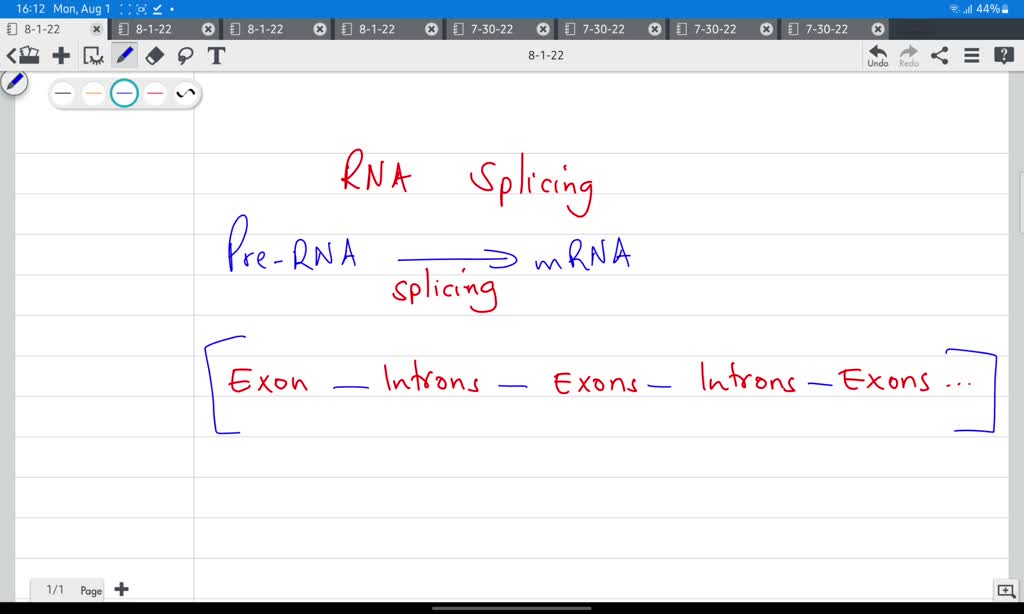 16:12 Mon, Aug 1 44%
8-1-22 8-1-22 8-1-22 8-1-22 7-30-22 7-30-22 7-30-22 7-30-22
T 8-1-22 Undo Redo
RNA Splicing
Pre-RNA → mRNA
splicing
[Exon — Introns — Exons — Introns — Exons ...]
1/1 Page